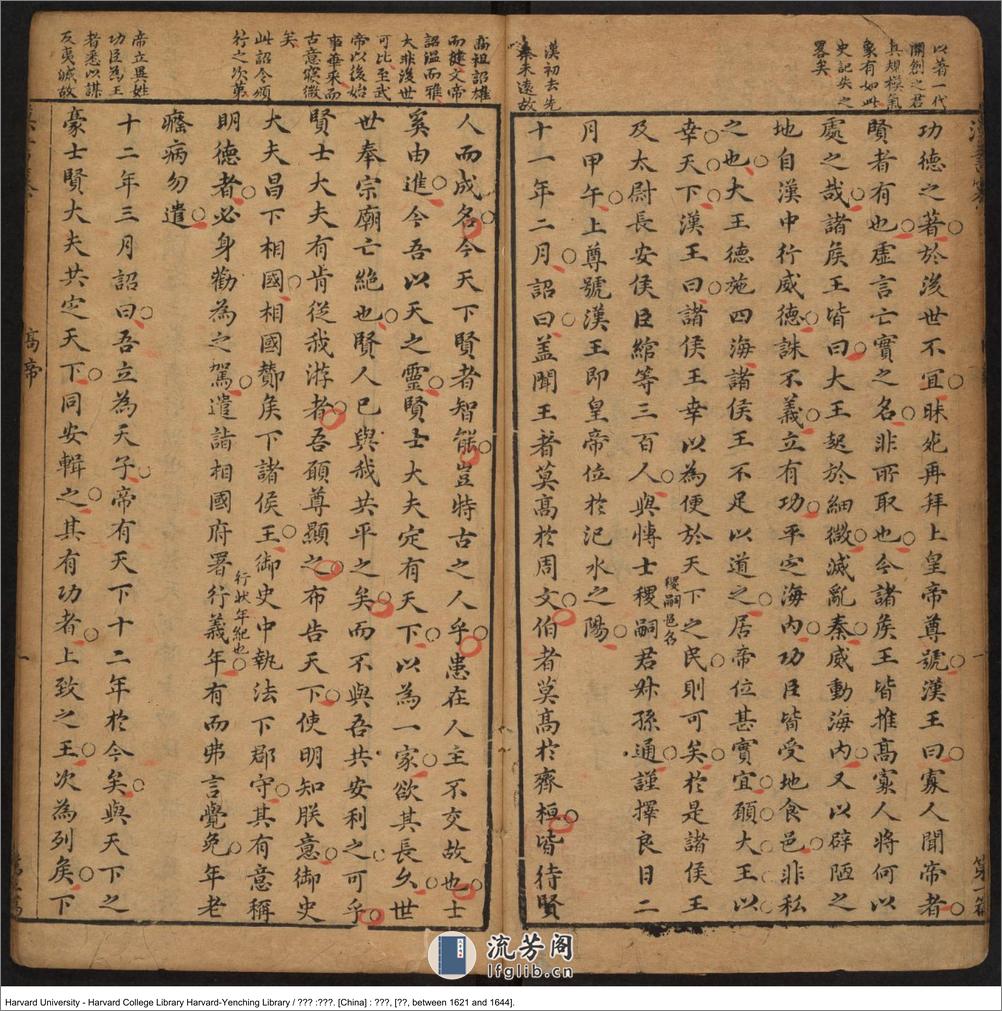 以著一代
開創之君
真規模氣
象有如此
史記失之
畧矣
功德之著於後世不宜昧死再拜上皇帝尊號漢王曰寡人聞帝者
賢者有也虛言亡實之名非所取也今諸矦王皆推高寡人將何以
處之哉諸矦王皆曰大王起於細微滅亂秦威動海內又以辟陋之
地自漢中行威德誅不義立有功平定海內功臣皆受地食邑非私
之也大王德施四海諸侯王不足以道之居帝位甚實宜願大王以
幸天下漢王曰諸侯王幸以為便於天下之民則可矣於是諸侯王
及太尉長安侯臣綰等三百人與博士稷嗣君叔孫通謹擇良日二
稷嗣邑名
月甲午上尊號漢王即皇帝位於汜水之陽
漢初去先
秦未遠故
十一年二月詔曰盖聞王者莫高於周文伯者莫高於齊桓皆待賢
第一篇
高祖詔雄
而健文帝
詔溫而雅
大非後世
可比至武
帝以後始
事華采而
古意寖微
矣
此詔令頒
行之次第
人而成名今天下賢者智能豈特古之人乎患在人主不交故也士
奚由進今吾以天之靈賢士大夫定有天下以為一家欲其長久世
世奉宗廟亡絕也賢人已與我共平之矣而不與吾共安利之可乎
賢士大夫有肯從我游者吾願尊顯之布告天下使明知朕意御史
大夫昌下相國相國酇矦下諸侯王御史中執法下郡守其有意稱
明德者必身勸為之駕遣詣相國府署行義年有而弗言覺免年老
行狀年紀也
癃病勿遣
帝立異姓
功臣為王
者悉以謀
反夷滅故
十二年三月詔曰吾立為天子帝有天下十二年於今矣與天下之
豪士賢大夫共定天下同安輯之其有功者上致之王次為列矦下
高帝
一
流芳阁
lfglib.cn
Harvard University - Harvard College Library Harvard-Yenching Library / ??? :???. [China] : ???, [??, between 1621 and 1644].